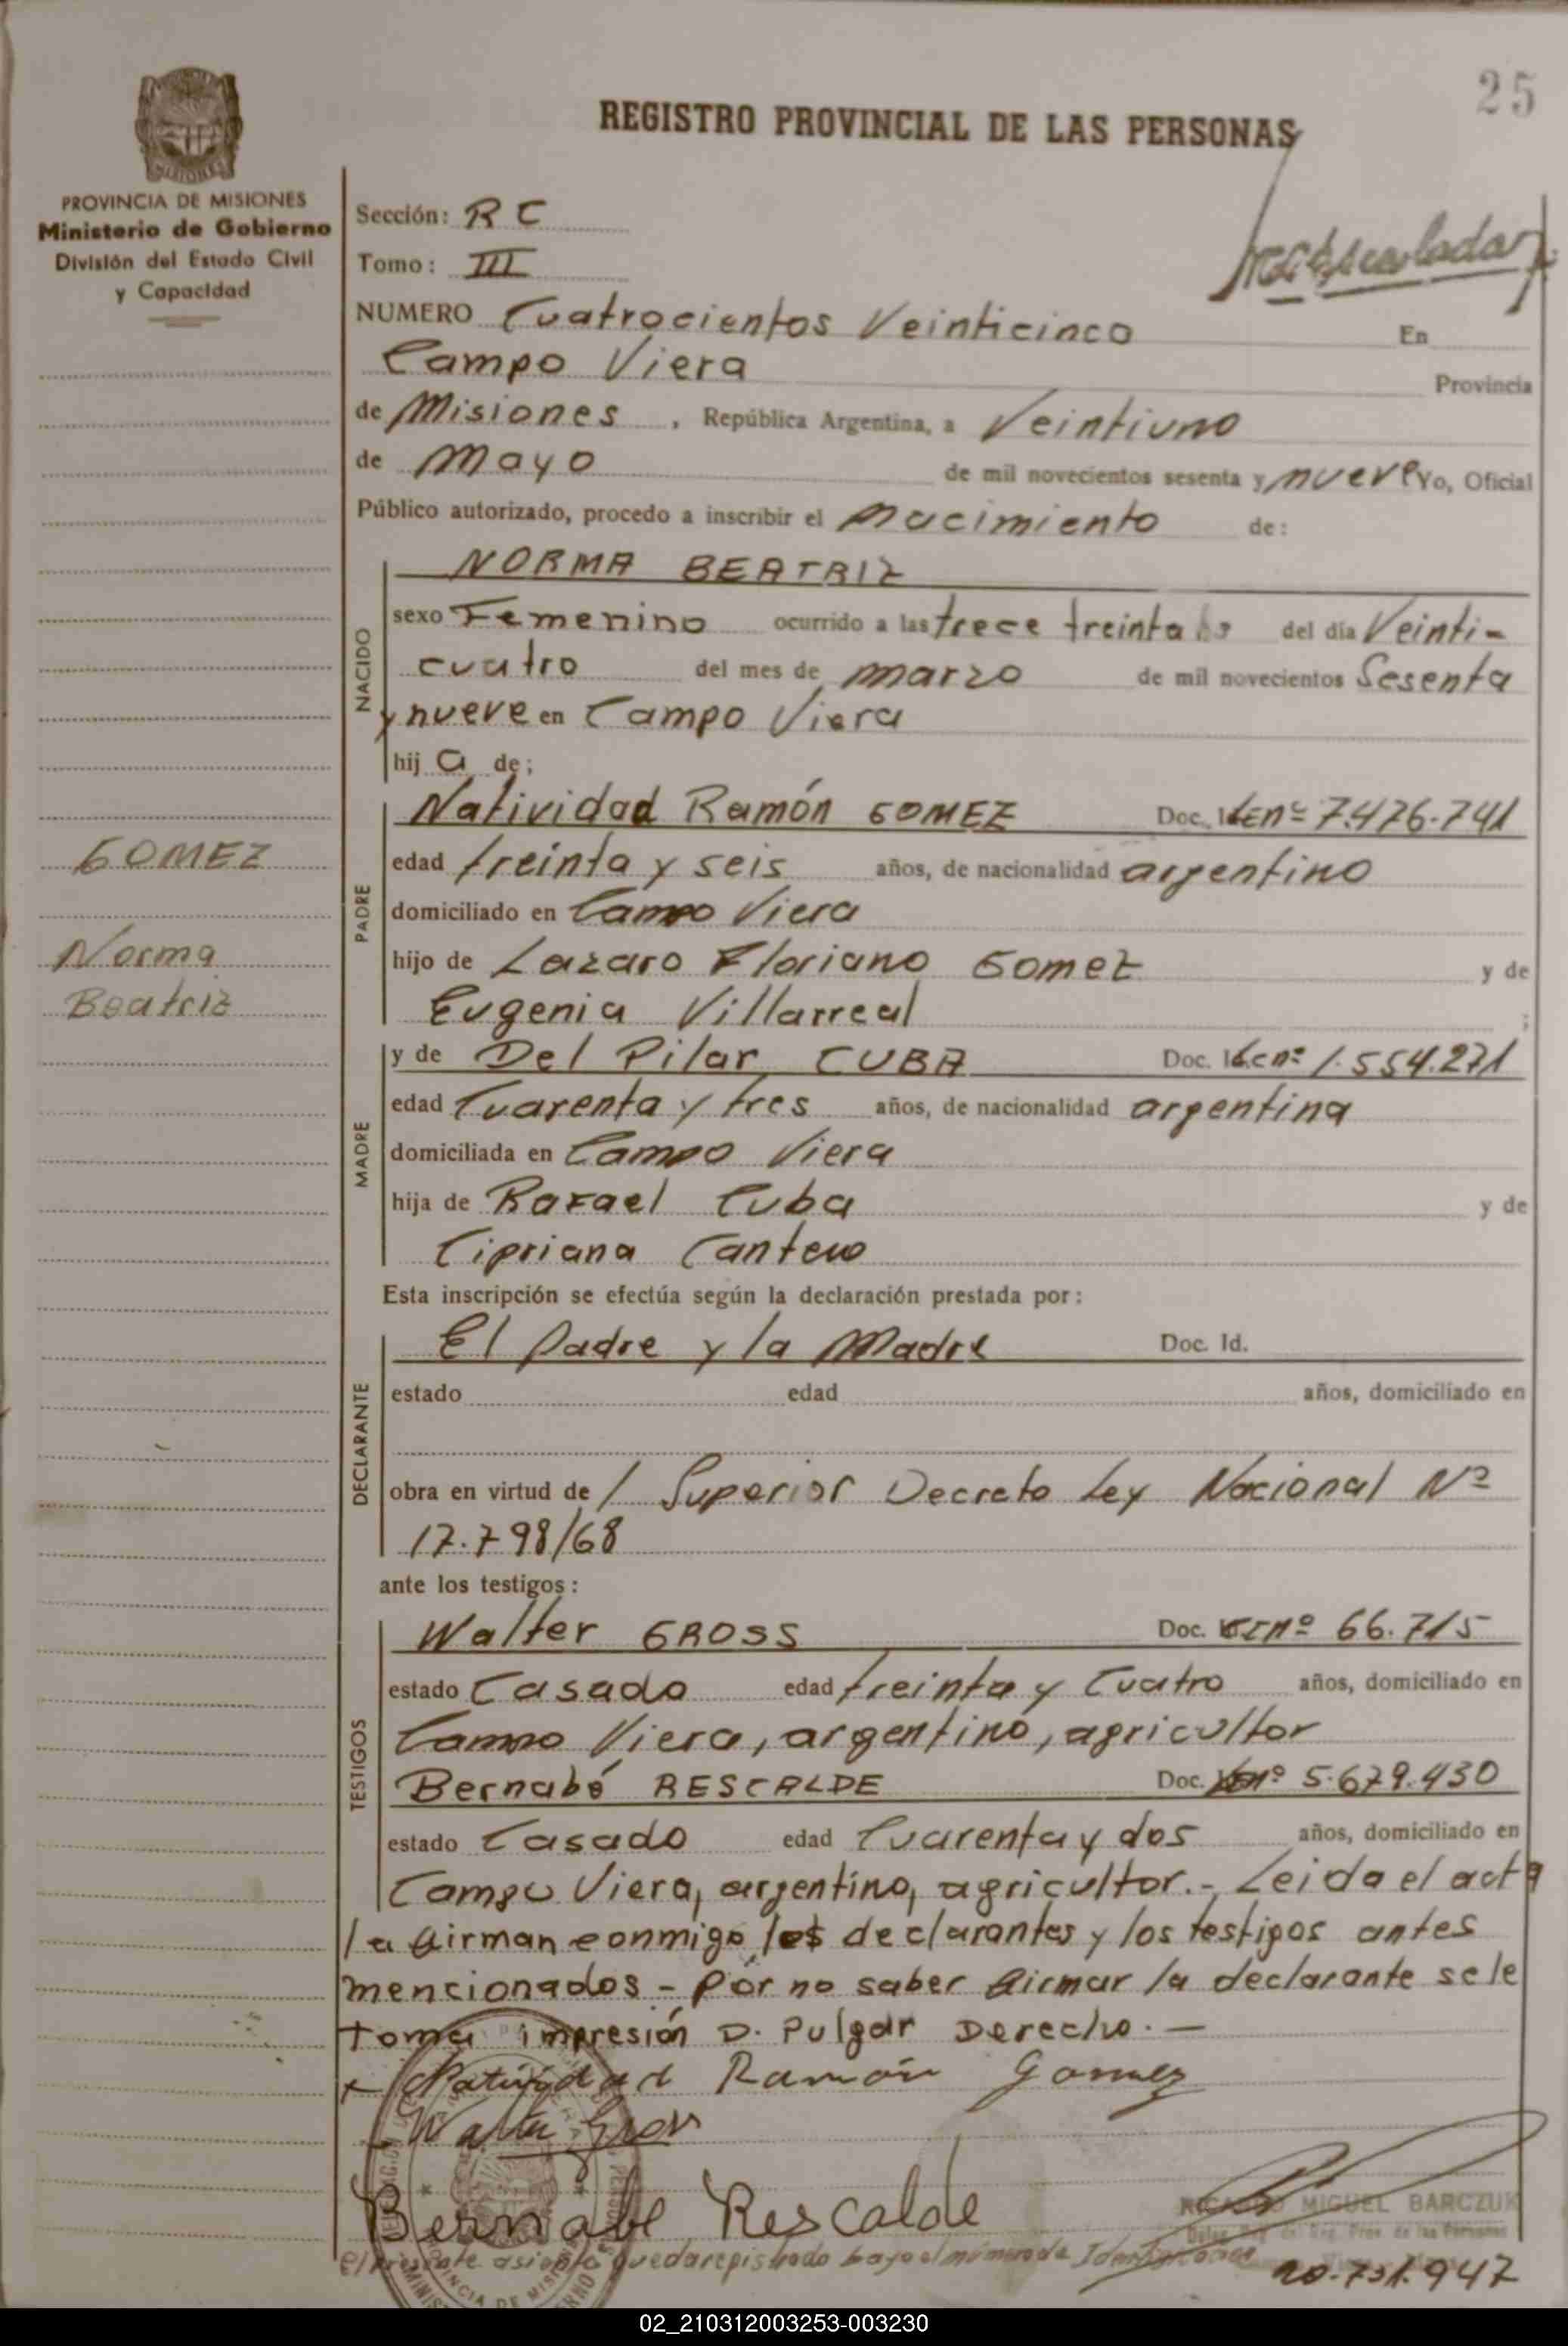 25
REGISTRO PROVINCIAL DE LAS PERSONAS
PROVINCIA DE MISIONES
Ministerio de Gobierno
División del Estado Civil
y Capacidad
Sección: R C
Tomo: III
NUMERO Cuatrocientos Veinticinco En
Campo Viera Provincia
de Misiones, República Argentina, a Veintiuno
de Mayo de mil novecientos sesenta y nueve Yo, Oficial
Público autorizado, procedo a inscribir el nacimiento de:
NACIDO
NORMA BEATRIZ
sexo Femenino ocurrido a las trece treinta hs del día Veinti-
cuatro del mes de marzo de mil novecientos Sesenta
y nueve en Campo Viera
hij a de;
PADRE
Natividad Ramón GOMEZ Doc. nº 7.476.741
edad treinta y seis años, de nacionalidad argentino
domiciliado en Campo Viera
hijo de Lazaro Floriano Gomez y de
Eugenia Villarreal ;
GOMEZ
Norma
Beatriz
MADRE
y de Del Pilar CUBA Doc. nº 1.554.271
edad Cuarenta y tres años, de nacionalidad argentina
domiciliada en Campo Viera
hija de Rafael Cuba y de
Cipriana Cantero
Esta inscripción se efectúa según la declaración prestada por:
DECLARANTE
El Padre y la Madre Doc. Id.
estado edad años, domiciliado en
obra en virtud de / Superior Decreto Ley Nacional Nº
17.798/68
ante los testigos:
TESTIGOS
Walter GROSS Doc. nº 66.715
estado Casado edad treinta y Cuatro años, domiciliado en
Campo Viera, argentino, agricultor
Bernabé RESCALDE Doc. nº 5.679.430
estado Casado edad Cuarenta y dos años, domiciliado en
Campo Viera, argentino, agricultor.- Leida el acta
la firman conmigo los declarantes y los testigos antes
mencionados - Por no saber firmar la declarante se le
Toma impresión D. Pulgar Derecho. -
Natividad Ramón Gomez
Walter Gross
Bernabe Rescalde
RICARDO MIGUEL BARCZUK
El presente asiento queda registrado bajo el número de Identificación
20.731.947
02_210312003253-003230